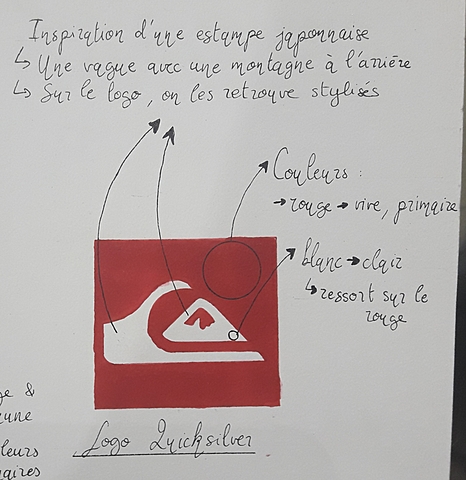 Inspiration d'une estampe japonnaise
↳ Une vague avec une montagne à l'arrière
↳ Sur le logo, on les retrouve stylisés
Couleurs :
→ rouge → vive, primaire
blanc → clair
↳ ressort sur le
rouge
&
Logo Quicksilver